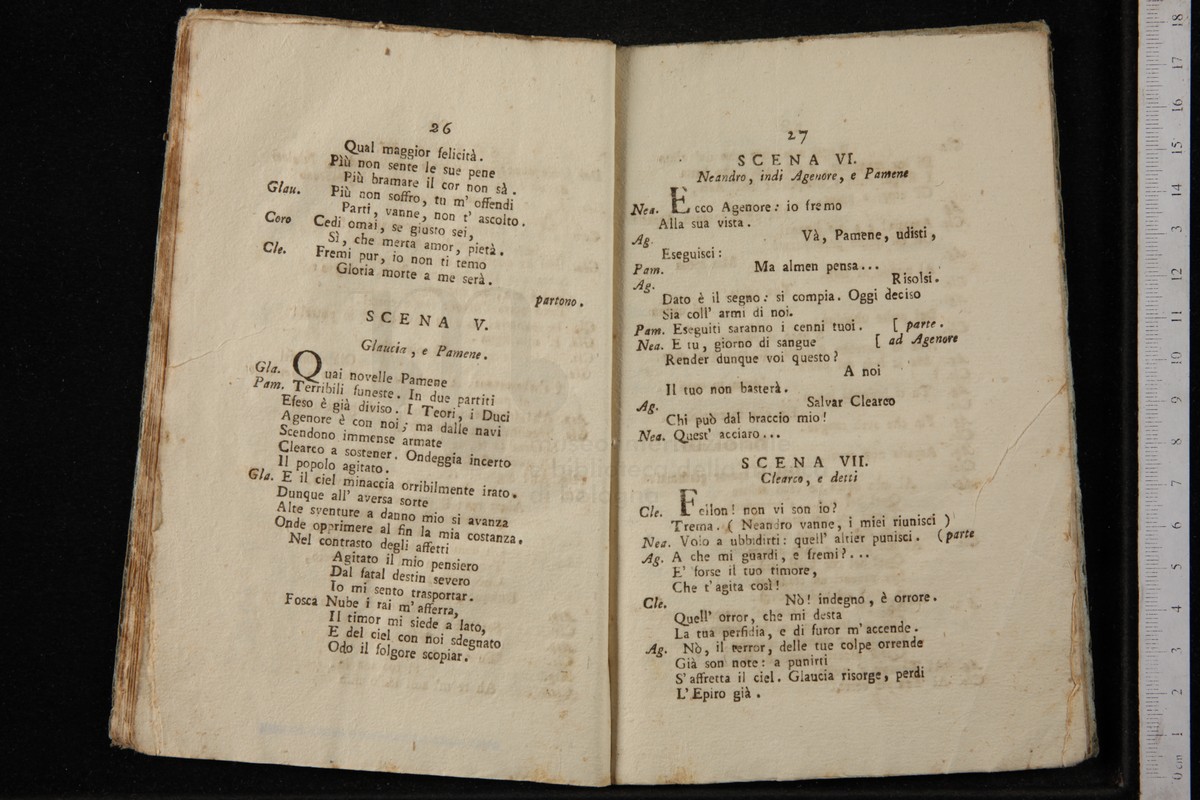 26
Qual maggior felicità.
Più non sente le sue pene
Più bramare il cor non sà.
Glau. Più non soffro, tu m' offendi
Parti, vanne, non t' ascolto.
Coro Cedi omai, se giusto sei,
Sì, che merta amor, pietà.
Cle. Fremi pur, io non ti temo
Gloria morte a me serà.
partono.
SCENA V.
Glaucia, e Pamene.
Gla. Quai novelle Pamene
Pam. Terribili funeste. In due partiti
Efeso è già diviso. I Teori, i Duci
Agenore è con noi; ma dalle navi
Scendono immense armate
Clearco a sostener. Ondeggia incerto
Il popolo agitato.
Gla. E il ciel minaccia orribilmente irato.
Dunque all' aversa sorte
Alte sventure a danno mio si avanza
Onde opprimere al fin la mia costanza.
Nel contrasto degli affetti
Agitato il mio pensiero
Dal fatal destin severo
Io mi sento trasportar.
Fosca Nube i rai m' afferra,
Il timor mi siede a lato,
E del ciel con noi sdegnato
Odo il folgore scopiar.
27
SCENA VI.
Neandro, indi Agenore, e Pamene
Nea. Ecco Agenore: io fremo
Alla sua vista.
Ag. Và, Pamene, udisti,
Eseguisci:
Pam. Ma almen pensa...
Ag. Risolsi.
Dato è il segno: si compia. Oggi deciso
Sia coll' armi di noi.
Pam. Eseguiti saranno i cenni tuoi. [ parte.
Nea. E tu, giorno di sangue [ ad Agenore
Render dunque voi questo?
A noi
Il tuo non basterà.
Ag. Salvar Clearco
Chi può dal braccio mio!
Nea. Quest' acciaro...
SCENA VII.
Clearco, e detti
Cle. Feilon! non vi son io?
Trema. ( Neandro vanne, i miei riunisci )
Nea. Volo a ubbidirti: quell' altier punisci. (parte
Ag. A che mi guardi, e fremi?...
E' forse il tuo timore,
Che t' agita così!
Cle. Nò! indegno, è orrore.
Quell' orror, che mi desta
La tua perfidia, e di furor m' accende.
Ag. Nò, il terror, delle tue colpe orrende
Già son note: a punirti
S' affretta il ciel. Glaucia risorge, perdi
L' Epiro già.